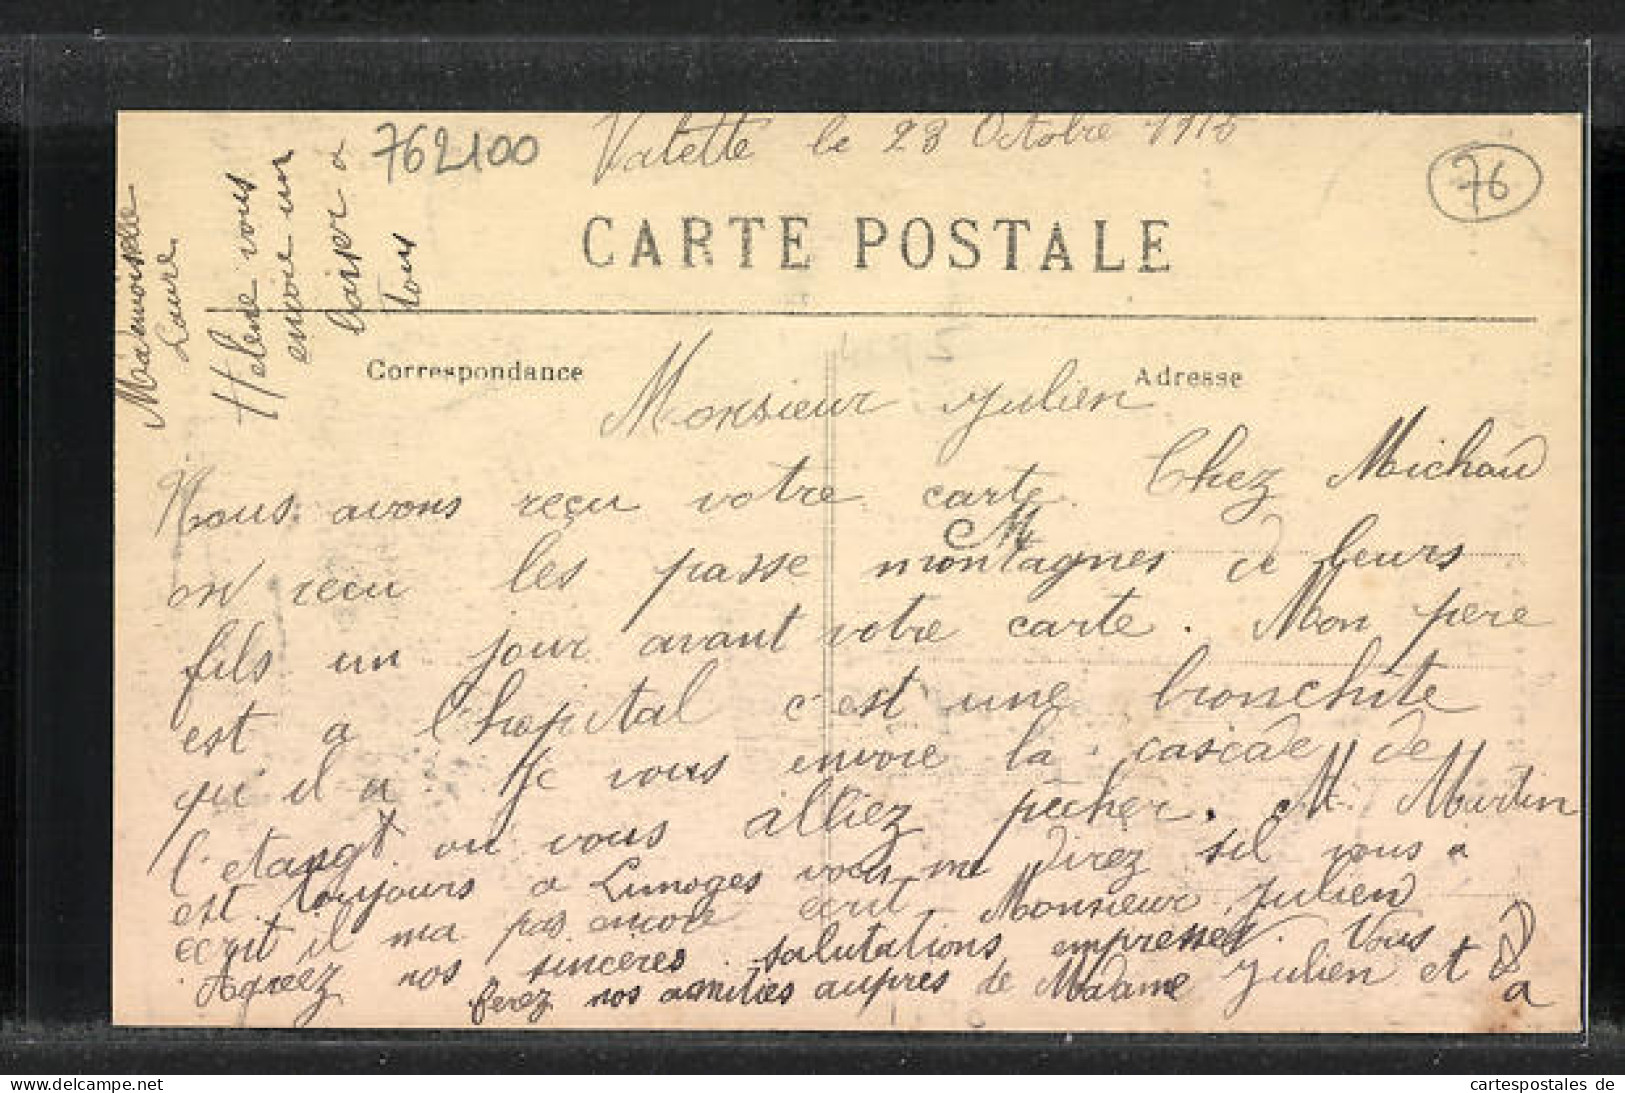 762100
Valette le 28 Octobre 1915
76
CARTE POSTALE
Correspondance
Adresse
Monsieur Julien
Nous avons reçu votre carte. Chez Michaud
M
on reçu les passe montagnes de leurs
fils un jour avant votre carte. Mon pere
est a l'hopital c'est une bronchite
qu'il a. Je vous envoie la cascade de
l'etangt ou vous alliez pecher. M. Martin
est toujours a Limoges vous me direz sil vous a
ecrit il ma pas encore ecrit Monsieur Julien
Agreez nos sincères salutations empresses. Vous
ferez nos amitiés aupres de Madame Julien et a
Mademoiselle
Laure
Helene vous
envoie un
baiser a
tous
www.delcampe.net
cartespostales de